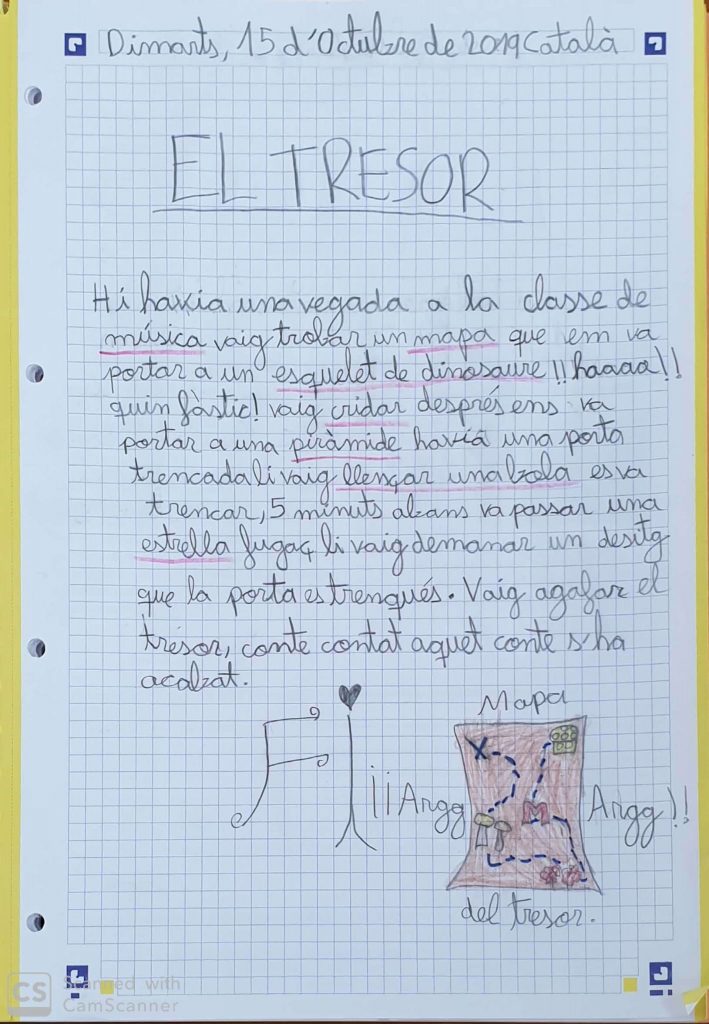 Dimarts, 15 d'Octubre de 2019 Català
EL TRESOR
Hi havia una vegada a la classe de
música vaig trobar un mapa que em va
portar a un esquelet de dinosaure!! haaaa!!
quin fàstic! vaig cridar després ens va
portar a una piràmide havia una porta
trencada li vaig llençar una bola es va
trencar, 5 minuts abans va passar una
estrella fugaç li vaig demanar un desitg
que la porta es trenqués. Vaig agafar el
tresor, conte contat aquet conte s'ha
acabat.
FI
Mapa
¡¡Argg
Argg!!
X
M
del tresor.
CS Scanned with
CamScanner